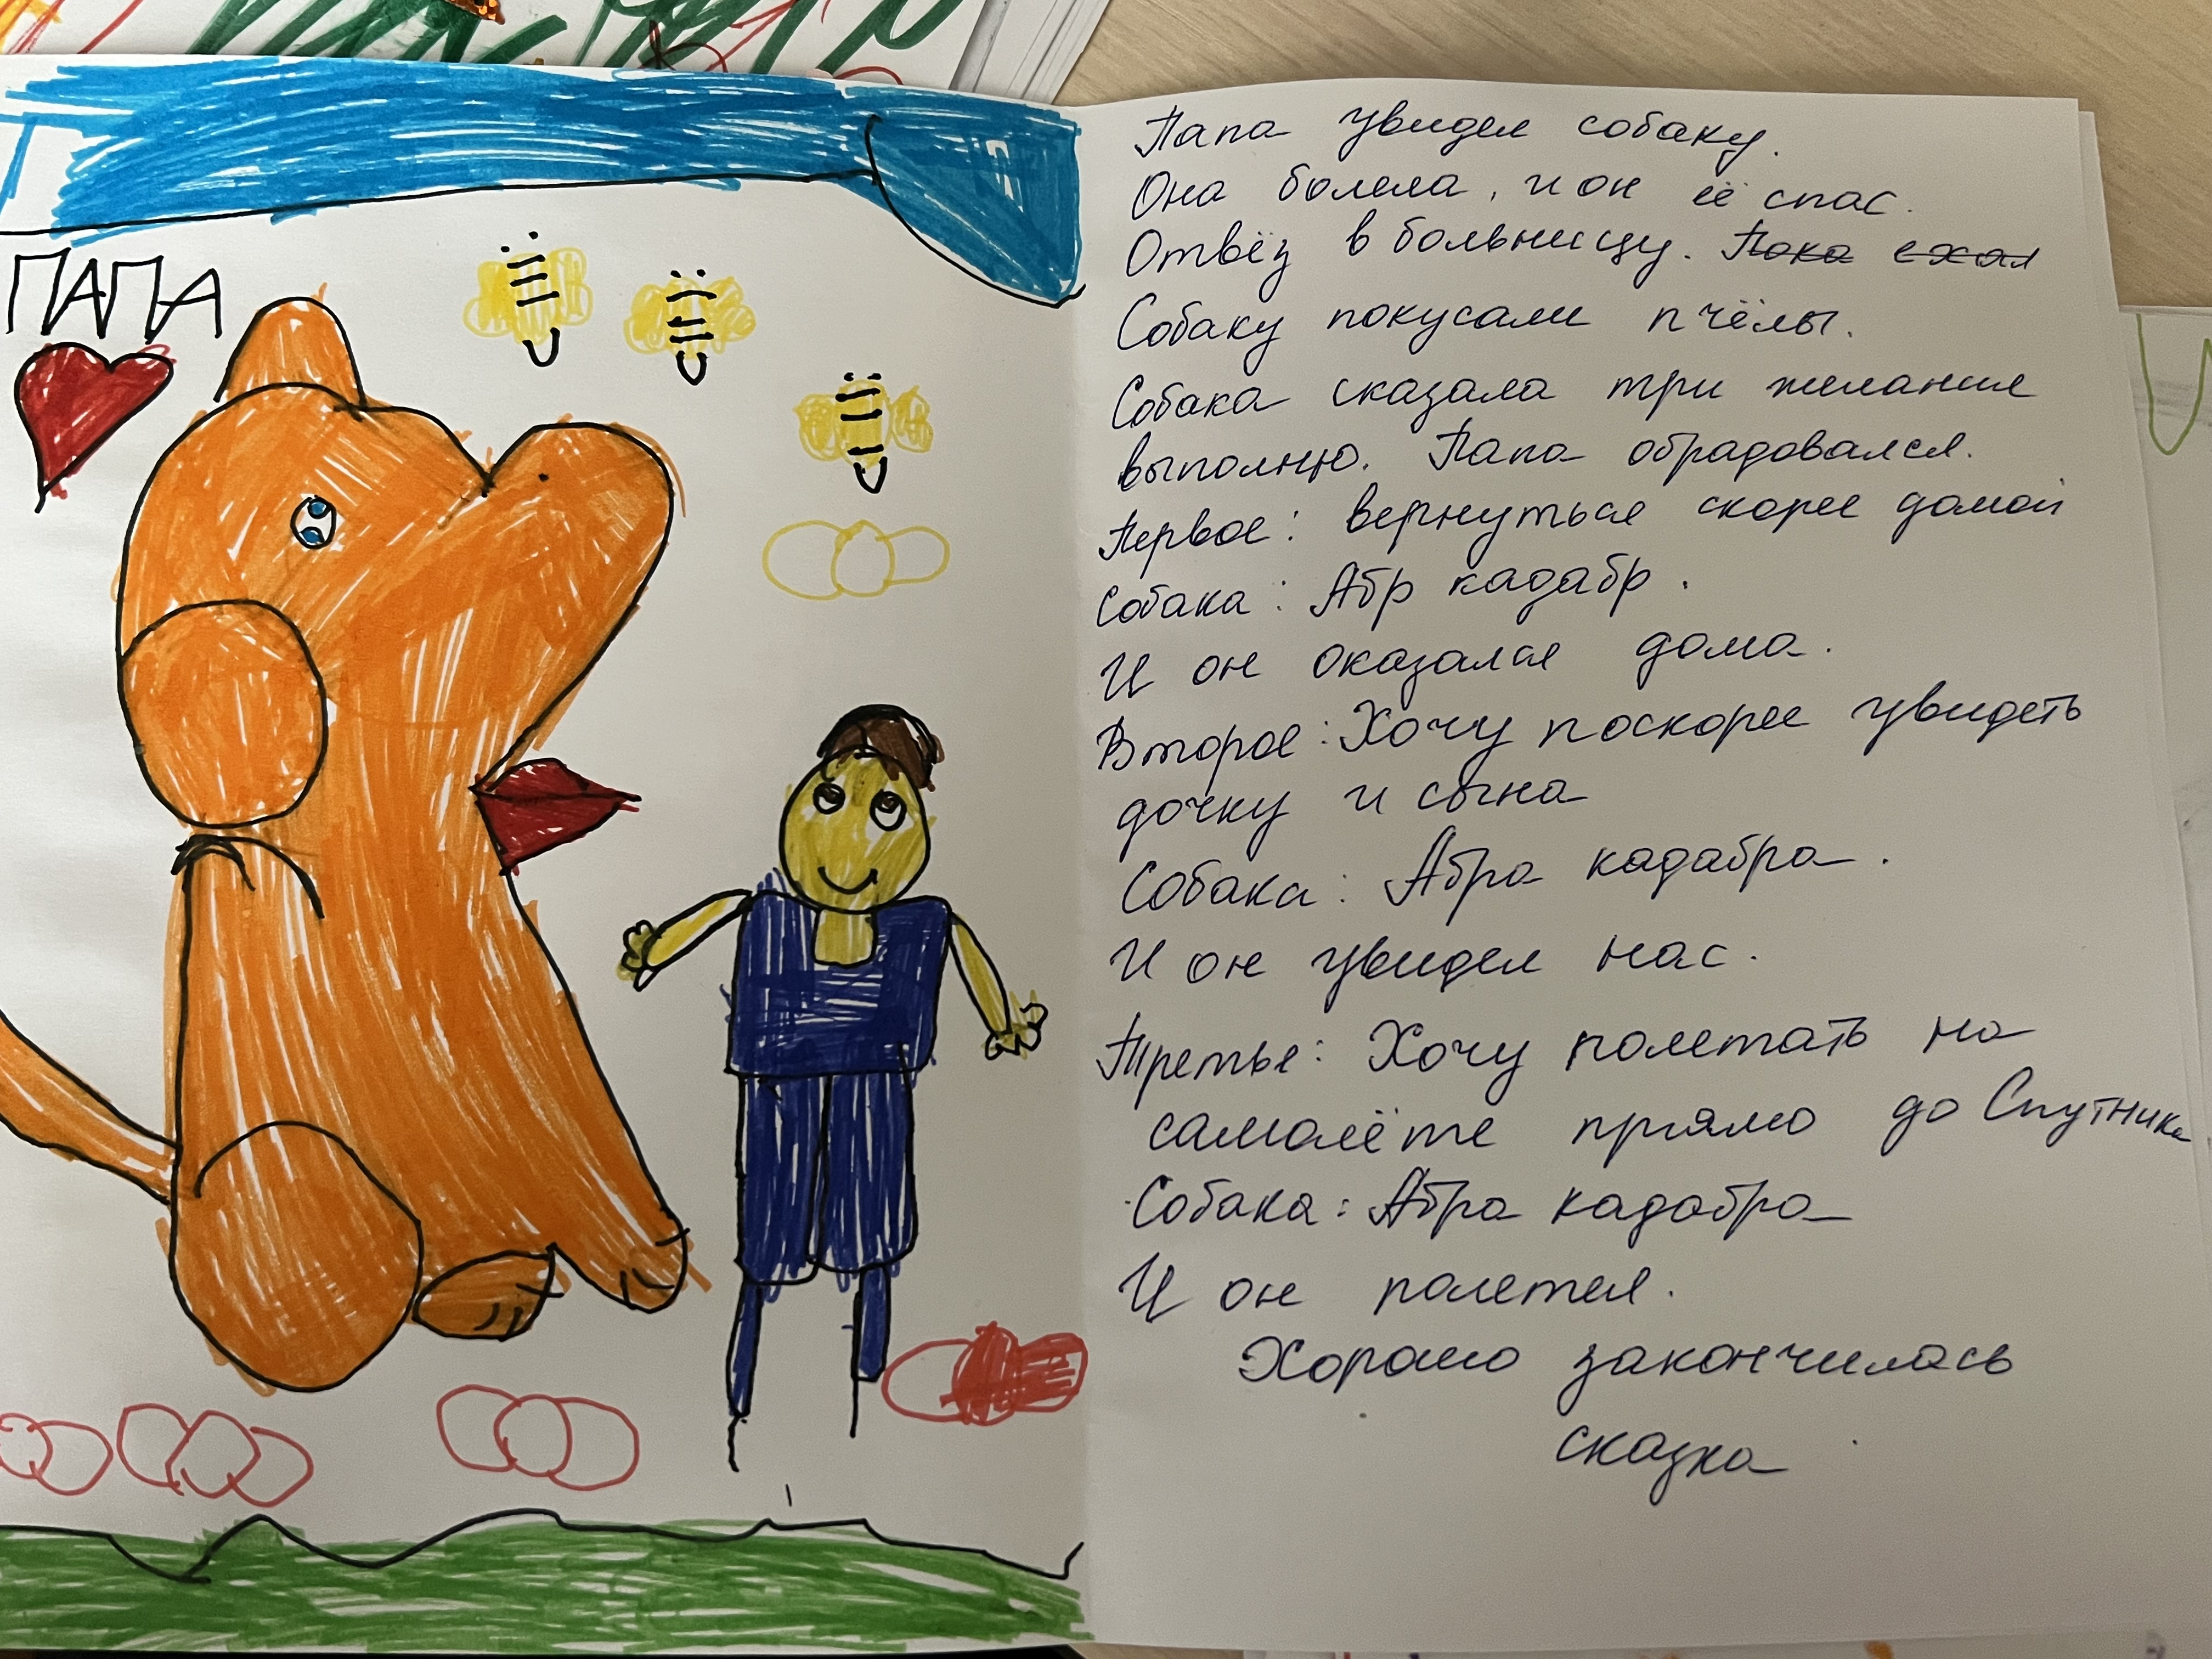 ПАПА
Папа увидел собаку.
Она болела, и он её спас.
Отвёз в больницу. Пока ехал
Собаку покусали пчёлы.
Собака сказала три желания
выполню. Папа обрадовался.
Первое: вернуться скорее домой
Собака: Абр кадабр.
И он оказался дома.
Второе: Хочу поскорее увидеть
дочку и сына
Собака: Абра кадабра.
И он увидел нас.
Третье: Хочу полетать на
самолёте прямо до Спутника
Собака: Абра кадабра
И он полетел.
Хорошо закончилась
сказка